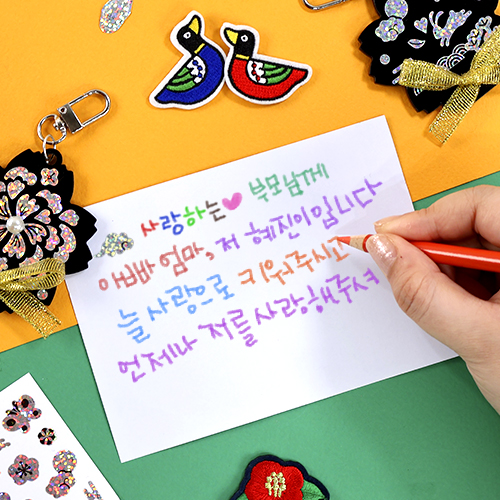 사랑하는 부모님께
아빠 엄마, 저 혜진이입니다
늘 사랑으로 키워주시고
언제나 저를 사랑해주셔